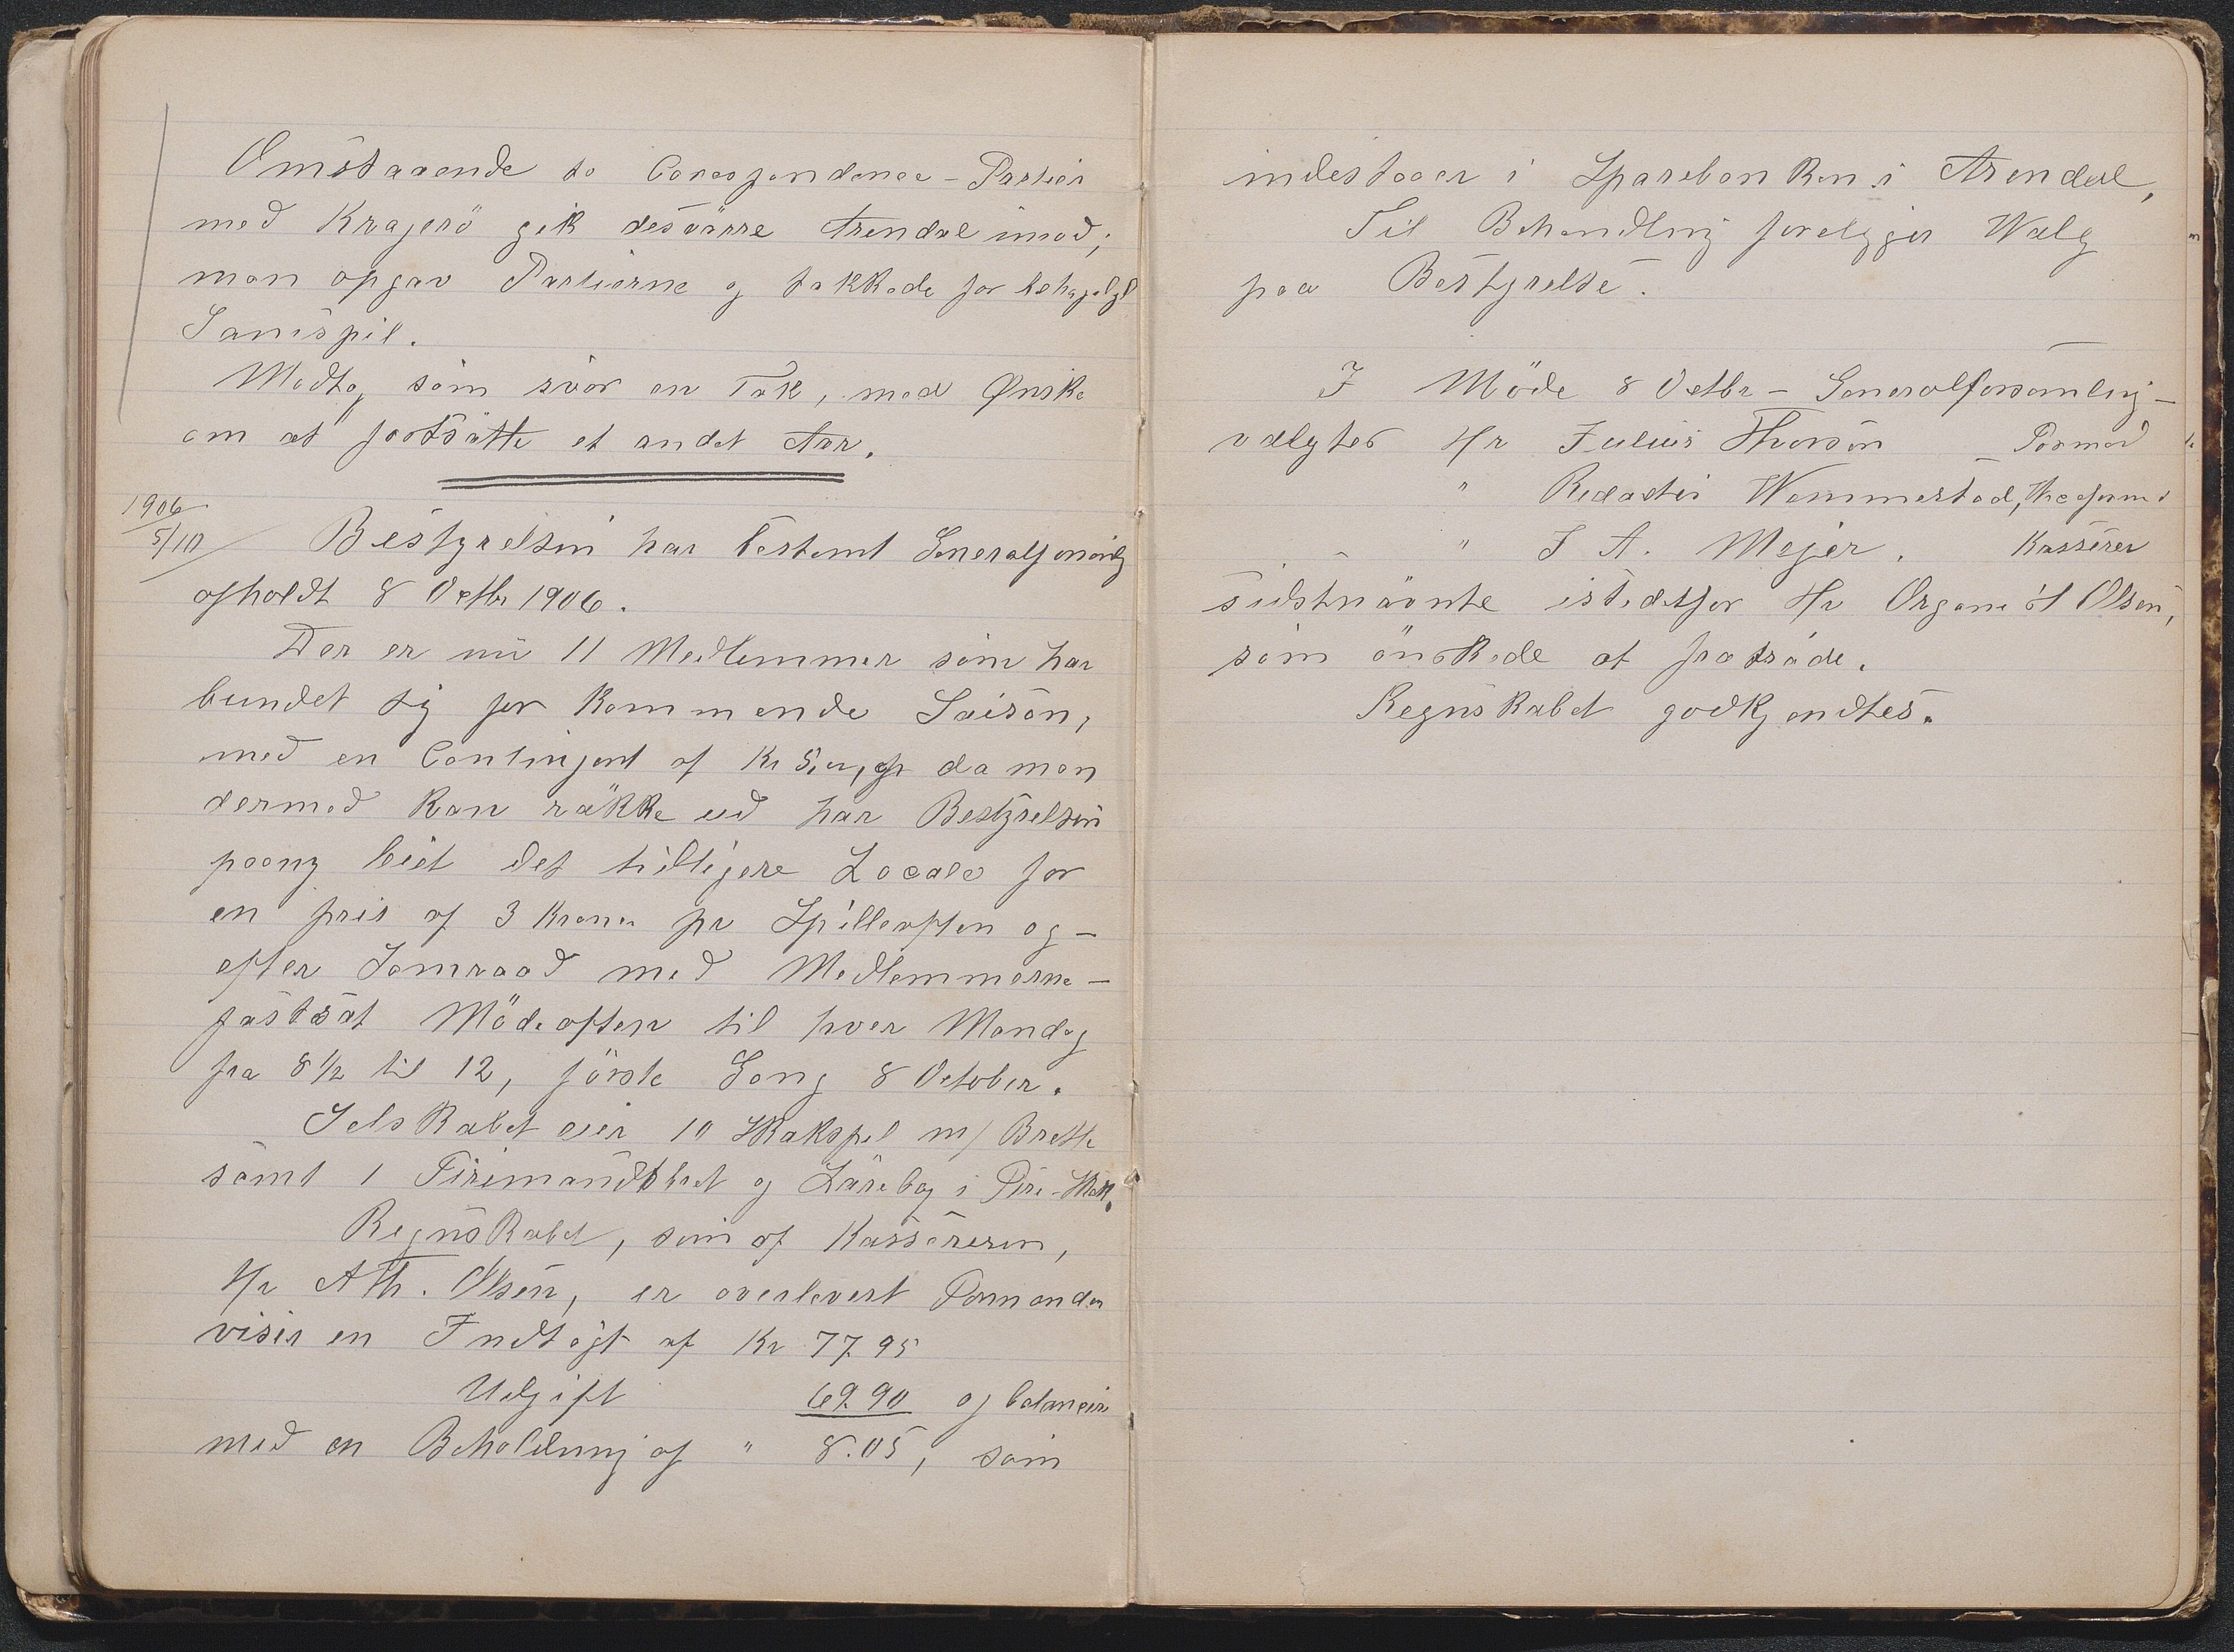 Omstaaende to Correspondance-Partier
med Kragerö gik desværre Arendal imod;
man opgav Partierne og takkede for behageligt
Samspil.
Modtog som svar en Tak, med Ønske
om at fortsätte et andet Aar.
1906
5/10 Bestyrelsen har bestemt Generalforsmlg
afholdt 8 Octbr 1906.
Der er nu 11 Medlemmer som har
bundet sig for kommende Saison,
med en Contingent af Kr 5,00, da man
dermed kan räkke ud har Bestyrelsen
paany leiet det tidligere Locale for
en pris af 3 Kroner pr Spilleaften og –
efter Samraad med Medlemmerne –
fastsat Mödeaften til hver Mandag
fra 8 1/2 til 12, förste Gang 8 October.
Selskabet eier 10 Skakspil m/ Brette
samt 1 Firemandsbret og Lärebog i Fire-Skak.
Regnskabet, som af Kassereren,
Hr A Th. Olsen, er overlevert Formanden
viser en Indtägt af Kr 77.95
Udgift 69.90 og balancerer
med en Beholdning af " 8.05, som
indestaaer i Sparebanken i Arendal,
Til Behandling foreligger Valg
paa Bestyrelse.
I Möde 8 Octbr – Generalforsamling –
valgtes Hr Julius Thorsen Formand
" Redactör Wammestad, Viceformd
" J A. Mejer. Kasserer
sidstnävnte istedetfor Hr Organist Olsen,
som önskede at fraträde.
Regnskabet godkjendtes.